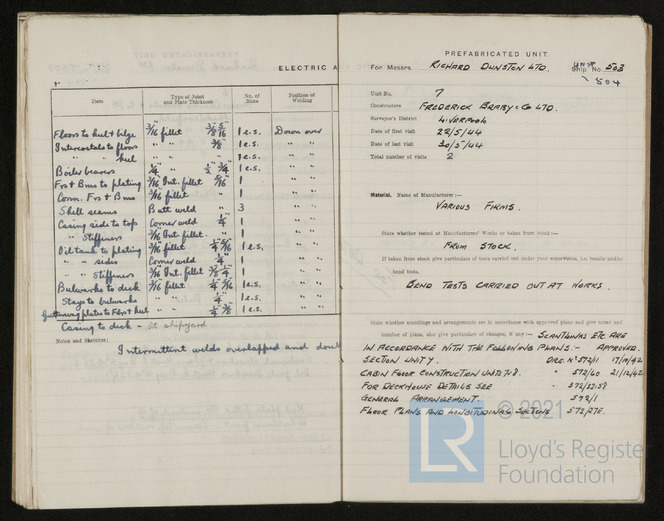 ELECTRIC A
Item
Type of Joint and Plate Thickness
No. of Runs
Position of Welding
Floors to keel & bilge 3/16 fillet 3/8 5/16 1 e.s. Down over
Intercostals to floors " " 3/8" 1 e.s. " "
" " keel " " " 1 e.s. " "
Boiler bearers 1/4 " " 1/2" 3/4" 1 e.s. " "
Frs & Bms to plating 3/16 Int. fillet 5/16 1 " "
Conn. Frs & Bms 3/16 fillet " 1 " "
Shell seams Butt weld " 3 " "
Casing side to top Corner weld 1/4" 1 " "
" Stiffeners 3/16 Int. fillet " 1 " "
Oil tank to plating 3/16 fillet 1/4" 5/16" 1 e.s. " "
" " sides Corner weld 1/4" 1 " "
" " Stiffeners 3/16 Int. fillet 1 " "
Bulwarks to deck 3/16 fillet 1/4" 5/16" 1 e.s. " "
Stays to bulwarks 1/4" 1 e.s. " "
plates to F & aft keel " " 1 e.s. " "
Casing to deck - At shipyard
Notes and Sketches:
Intermittent welds overlapped and doub
PREFABRICATED UNIT.
For Messrs. RICHARD DUNSTON LTD. UNIT Ship No. 503
504
Unit No. 7
Constructors FREDERICK BRABY & CO LTD.
Surveyor's District LIVERPOOL
Date of first visit 22/5/44
Date of last visit 30/5/44
Total number of visits 2
Material. Name of Manufacturer :—
VARIOUS FIRMS.
State whether tested at Manufacturers' Works or taken from stock :—
FROM STOCK.
If taken from stock give particulars of tests carried out under your supervision, i.e. tensile and/or
bend tests.
BEND TESTS CARRIED OUT AT WORKS.
State whether scantlings and arrangements are in accordance with approved plans and give name and
number of plans, also give particulars of changes, if any :— SCANTLINGS ETC ARE
IN ACCORDANCE WITH THE FOLLOWING PLANS :- APPROVED.
SECTION UNIT 7. DRG. No 572/1 17/12/42
CABIN FLOOR CONSTRUCTION UNITS 7-8. " 572/60 21/12/42
FOR DECKHOUSE DETAILS SEE " 572/57.58
GENERAL ARRANGEMENT. 572/1
FLOOR PLANS AND LONGITUDINAL SECTIONS 572/27E.
© 2021
LR
Lloyd's Register
Foundation